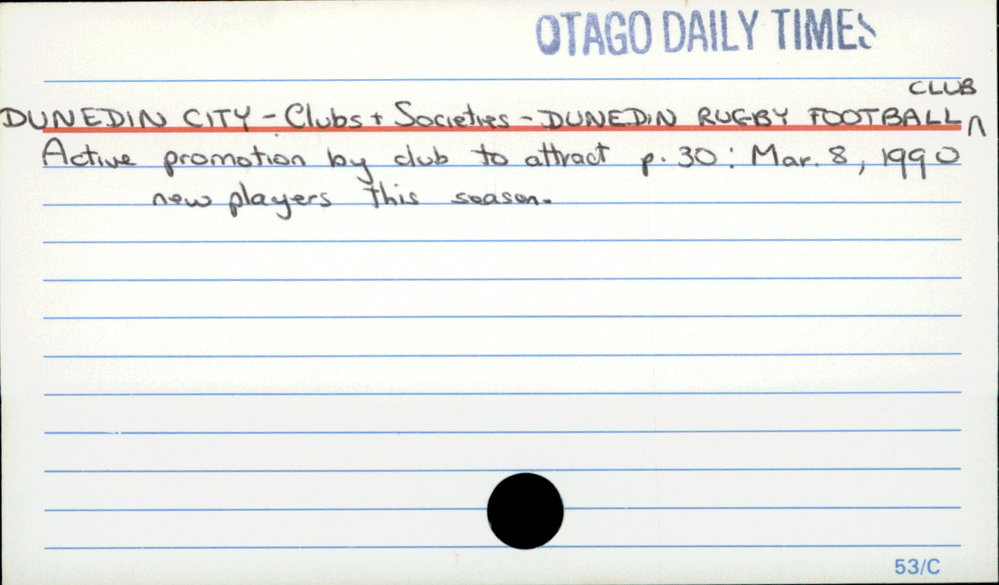 OTAGO DAILY TIMES
CLUB
DUNEDIN CITY - Clubs + Societies - DUNEDIN RUGBY FOOTBALL ^
Active promotion by club to attract p. 30 : Mar. 8, 1990
new players this season.
53/C